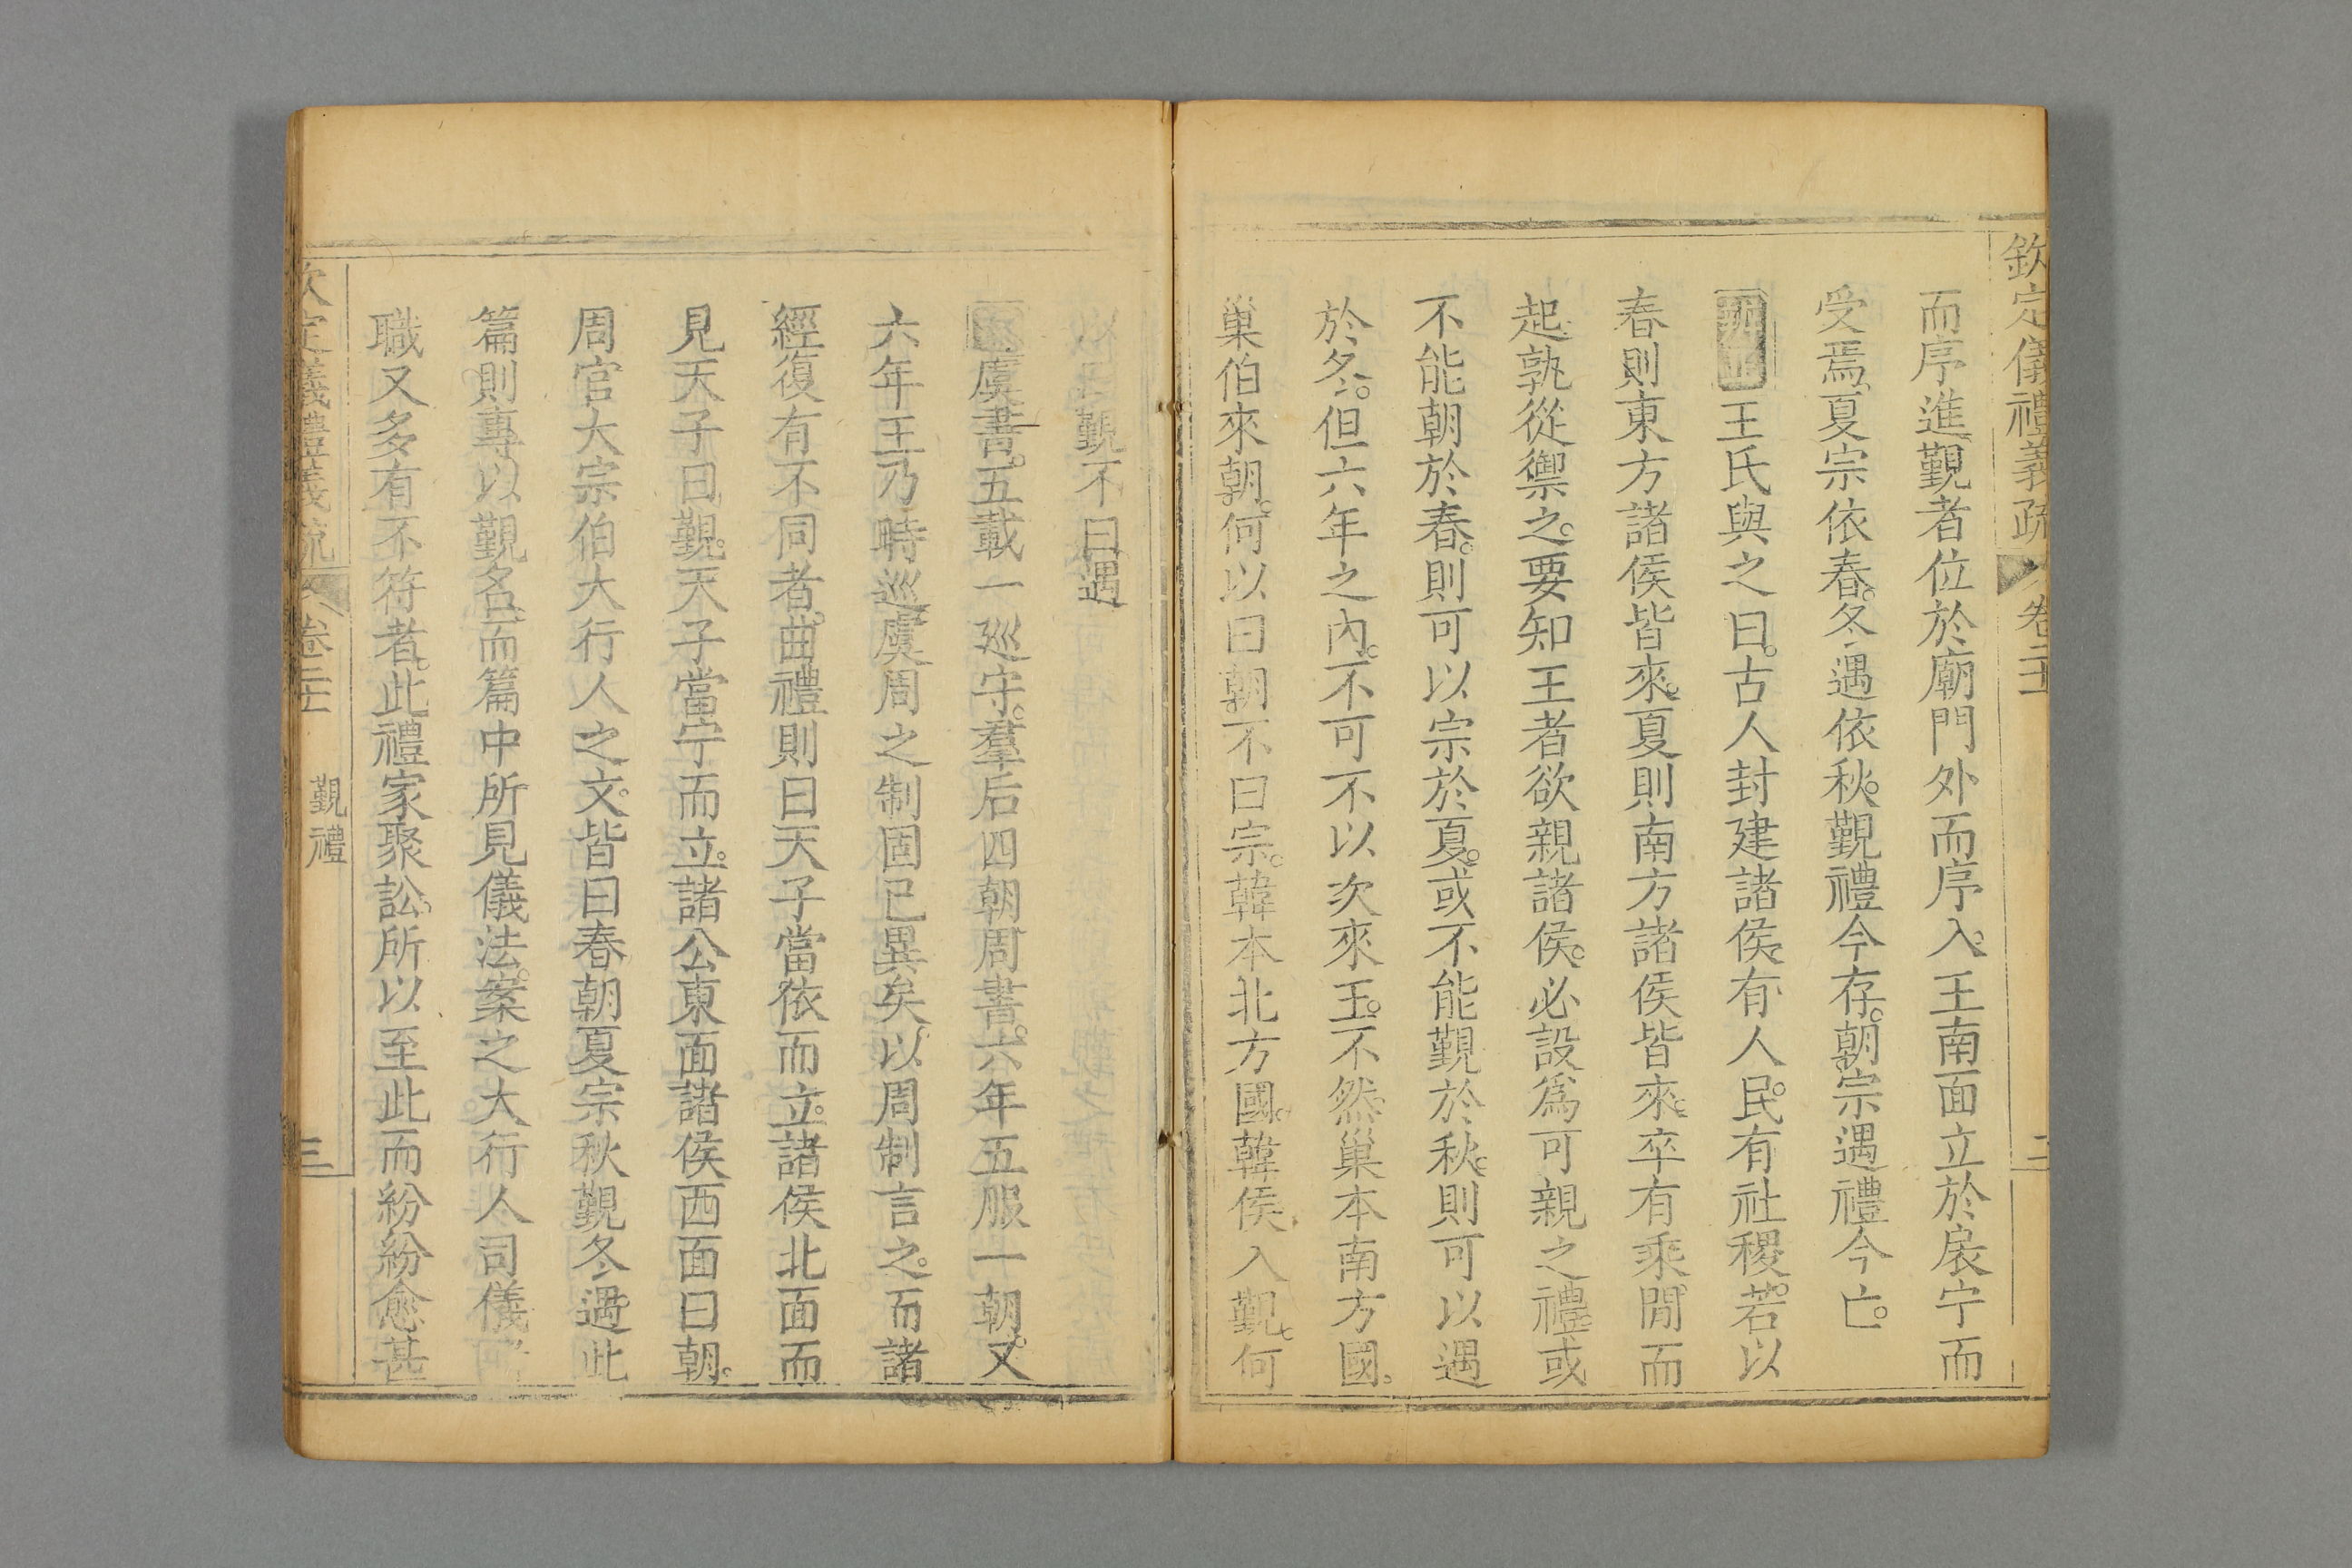 欽定儀禮義疏 卷二十一
而序進覲者位於廟門外而序入王南面立於扆宁而
受焉夏宗依春冬遇依秋覲禮今存朝宗遇禮今亡
王氏與之曰古人封建諸侯有人民有社稷若以
春則東方諸侯皆來夏則南方諸侯皆來卒有乘閒而
起孰從禦之要知王者欲親諸侯必設爲可親之禮或
不能朝於春則可以宗於夏或不能覲於秋則可以遇
於冬但六年之內不可不以次來王不然巢本南方國
巢伯來朝何以曰朝不曰宗韓本北方國韓侯入覲何
以曰覲不曰遇
虞書五載一巡守羣后四朝周書六年五服一朝又
六年王乃時巡虞周之制固已異矣以周制言之而諸
經復有不同者曲禮則曰天子當依而立諸侯北面而
見天子曰覲天子當宁而立諸公東面諸侯西面曰朝
周官大宗伯大行人之文皆曰春朝夏宗秋覲冬遇此
篇則專以覲名而篇中所見儀法案之大行人司儀
職又多有不符者此禮家聚訟所以至此而紛紛愈甚
欽定儀禮義疏 卷二十一 覲禮 三